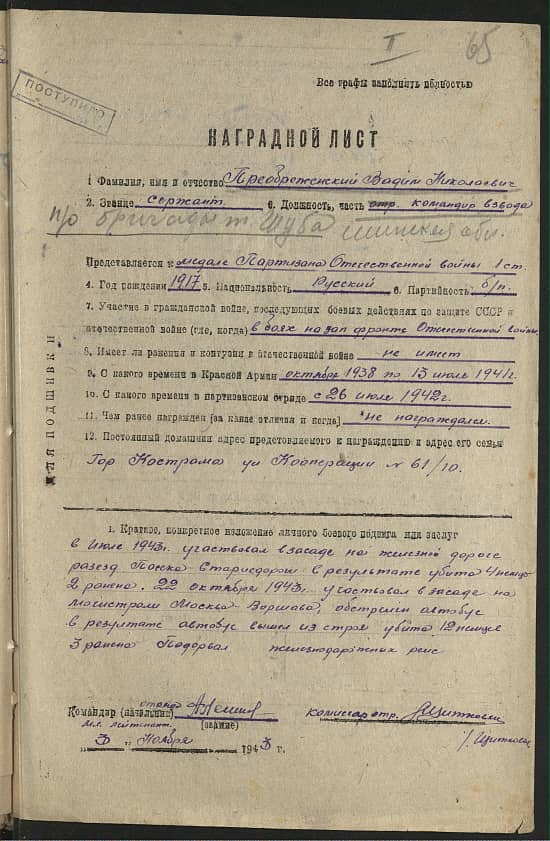 II 65
Все графы заполнять полностью
ПОСТУПИЛО
НАГРАДНОЙ ЛИСТ
1 Фамилия, имя и отчество Преображенский Вадим Николаевич
2. Звание сержант 6. Должность, часть отр. командир взвода
п/о бригады т. Шуба минская обл.
Представляется к медале Партизана Отечественной войны 1 ст.
4. Год рождения 1917 5. Национальность Русский 6. Партийность б/п.
7. Участие в гражданской войне, последующих боевых действиях по защите СССР и
отечественной войне (где, когда) в боях на зап фронте Отечественной войны
8. Имеет ли ранения и контузии в отечественной войне не имеет
9. С какого времени в Красной Армии октября 1938 по 13 июле 1941 г.
10. С какого времени в партизанском отряде с 26 июле 1942 г.
11. Чем ранее награжден (за какие отличия и когда) не награждался.
12. Постоянный домашний адрес предстовляемого к награждению и адрес его семьи
Гор Кострома ул Кооперации № 61/10.
ДЛЯ ПОДШИВКИ
1. Краткое, конкретное изложение личного боевого подвига или заслуг
в июле 1943 г. участвовал в засаде на железной дороге
разезд в результате убито 4 немца
2 ранено. 22 октября 1943 г. участвовал в засаде на
магистрали Москва Варшава, обстреляли автобус
в результате автобус вышел из строя убито 12 немцев
3 ранено Подорвал железнодорожных рельс
Командир (начальник) отряда
мл. лейтенант (звание)
комиссар отр.
„3" Ноября 1943 г.